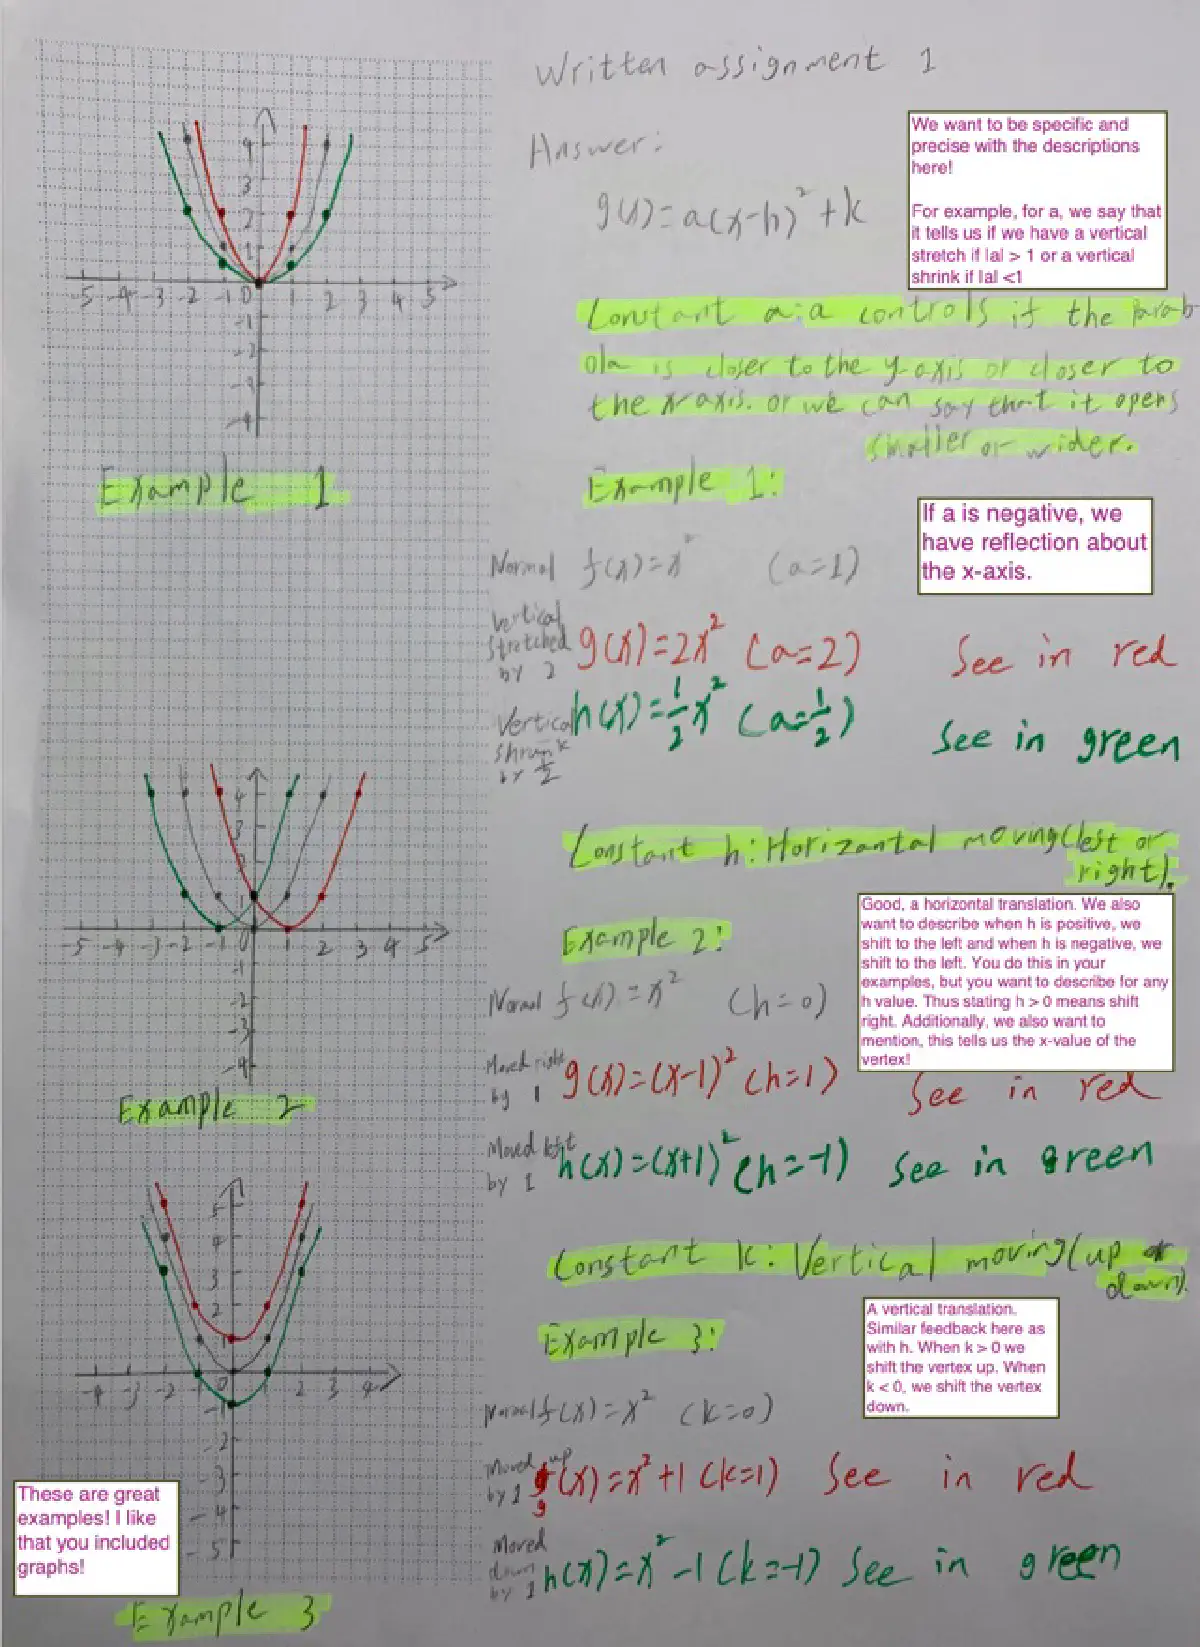 Written assignment 1
Answer:
g(x)=a(x-h)²+k
We want to be specific and
precise with the descriptions
here!
For example, for a, we say that
it tells us if we have a vertical
stretch if |a| > 1 or a vertical
shrink if |a| <1
Constant a: a controls if the parab
ola is closer to the y-axis or closer to
the x-axis. or we can say that it opens
smaller or wider.
Example 1:
If a is negative, we
have reflection about
the x-axis.
Normal f(x)=x² (a=1)
Vertical
stretched
by 2
g(x)=2x² (a=2) See in red
Vertical
shrunk
by 1/2
h(x)=1/2x² (a=1/2) See in green
4
3
2
1
-5 -4 -3 -2 -1 0 1 2 3 4 5
-1
-2
-3
-4
Example 1
Constant h: Horizantal moving(lest or
right).
Good, a horizontal translation. We also
want to describe when h is positive, we
shift to the left and when h is negative, we
shift to the left. You do this in your
examples, but you want to describe for any
h value. Thus stating h > 0 means shift
right. Additionally, we also want to
mention, this tells us the x-value of the
vertex!
Example 2:
Normal f(x)=x² (h=0)
Moved right
by 1
g(x)=(x-1)² (h=1) See in red
Moved left
by 1
h(x)=(x+1)² (h=-1) See in green
4
3
2
1
-5 -4 -3 -2 -1 0 1 2 3 4 5
-1
-2
-3
-4
Example 2
Constant k: Vertical moving(up or
down).
A vertical translation.
Similar feedback here as
with h. When k > 0 we
shift the vertex up. When
k < 0, we shift the vertex
down.
Example 3:
Normal f(x)=x² (k=0)
Moved up
by 1
g(x)=x²+1 (k=1) See in red
g
Moved
down
by 1
h(x)=x²-1 (k=-1) See in green
5
4
3
2
1
-4 -3 -2 -1 0 1 2 3 4
-1
-2
-3
-4
-5
These are great
examples! I like
that you included
graphs!
Example 3